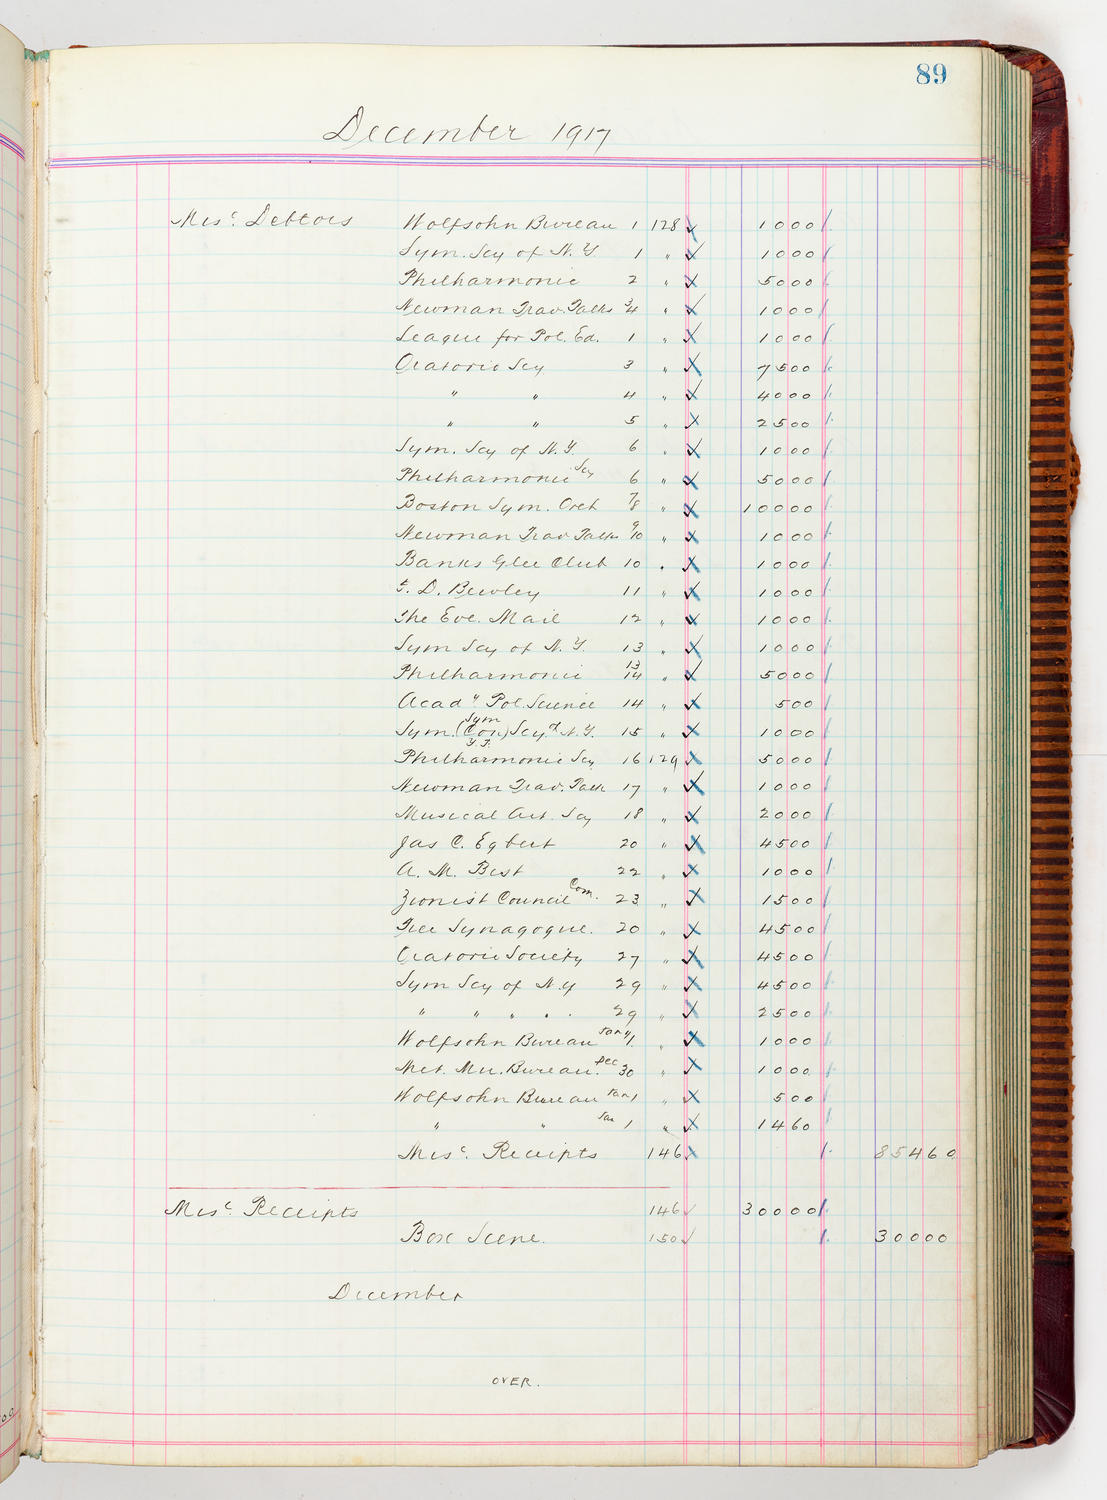 89
December 1917
Misc. Debtors Wolfsohn Bureau 1 128 1000
Sym. Scy of N.Y. 1 " 1000
Philharmonic 2 " 5000
Newman Trav. Talks 3/4 " 1000
League for Pol. Ed. 1 " 1000
Oratorio Scy 3 " 7500
" " 4 " 4000
" " 5 " 2500
Sym. Scy of N.Y. 6 " 1000
Philharmonic Scy 6 " 5000
Boston Sym. Orch 7/8 " 10000
Newman Trav Talks 9/10 " 1000
Banks Glee Club 10 " 1000
F. D. Bewley 11 " 1000
The Eve. Mail 12 " 1000
Sym Scy of N.Y. 13 " 1000
Philharmonic 13/14 " 5000
Acad " Pol. Science 14 " 500
Sym. (Sym Con Y.P.) Scy of N.Y. 15 " 1000
Philharmonic Scy 16 129 5000
Newman Trav. Talk 17 " 1000
Musical Art. Scy 18 " 2000
Jas C. Egbert 20 " 4500
A. M. Best 22 " 1000
Zionist Council Com. 23 " 1500
Free Synagogue. 20 " 4500
Oratorio Society 27 " 4500
Sym Scy of N.Y 29 " 4500
" " " " " 29 " 2500
Wolfsohn Bureau Jan 1/1 " 1000
Met. Mu. Bureau. Dec 30 " 1000
Wolfsohn Bureau Jan 1 " 500
" " Jan 1 " 1460
Misc. Receipts 146 85460
Misc. Receipts 146 30000
Box Scene. 150 30000
December
OVER.
00